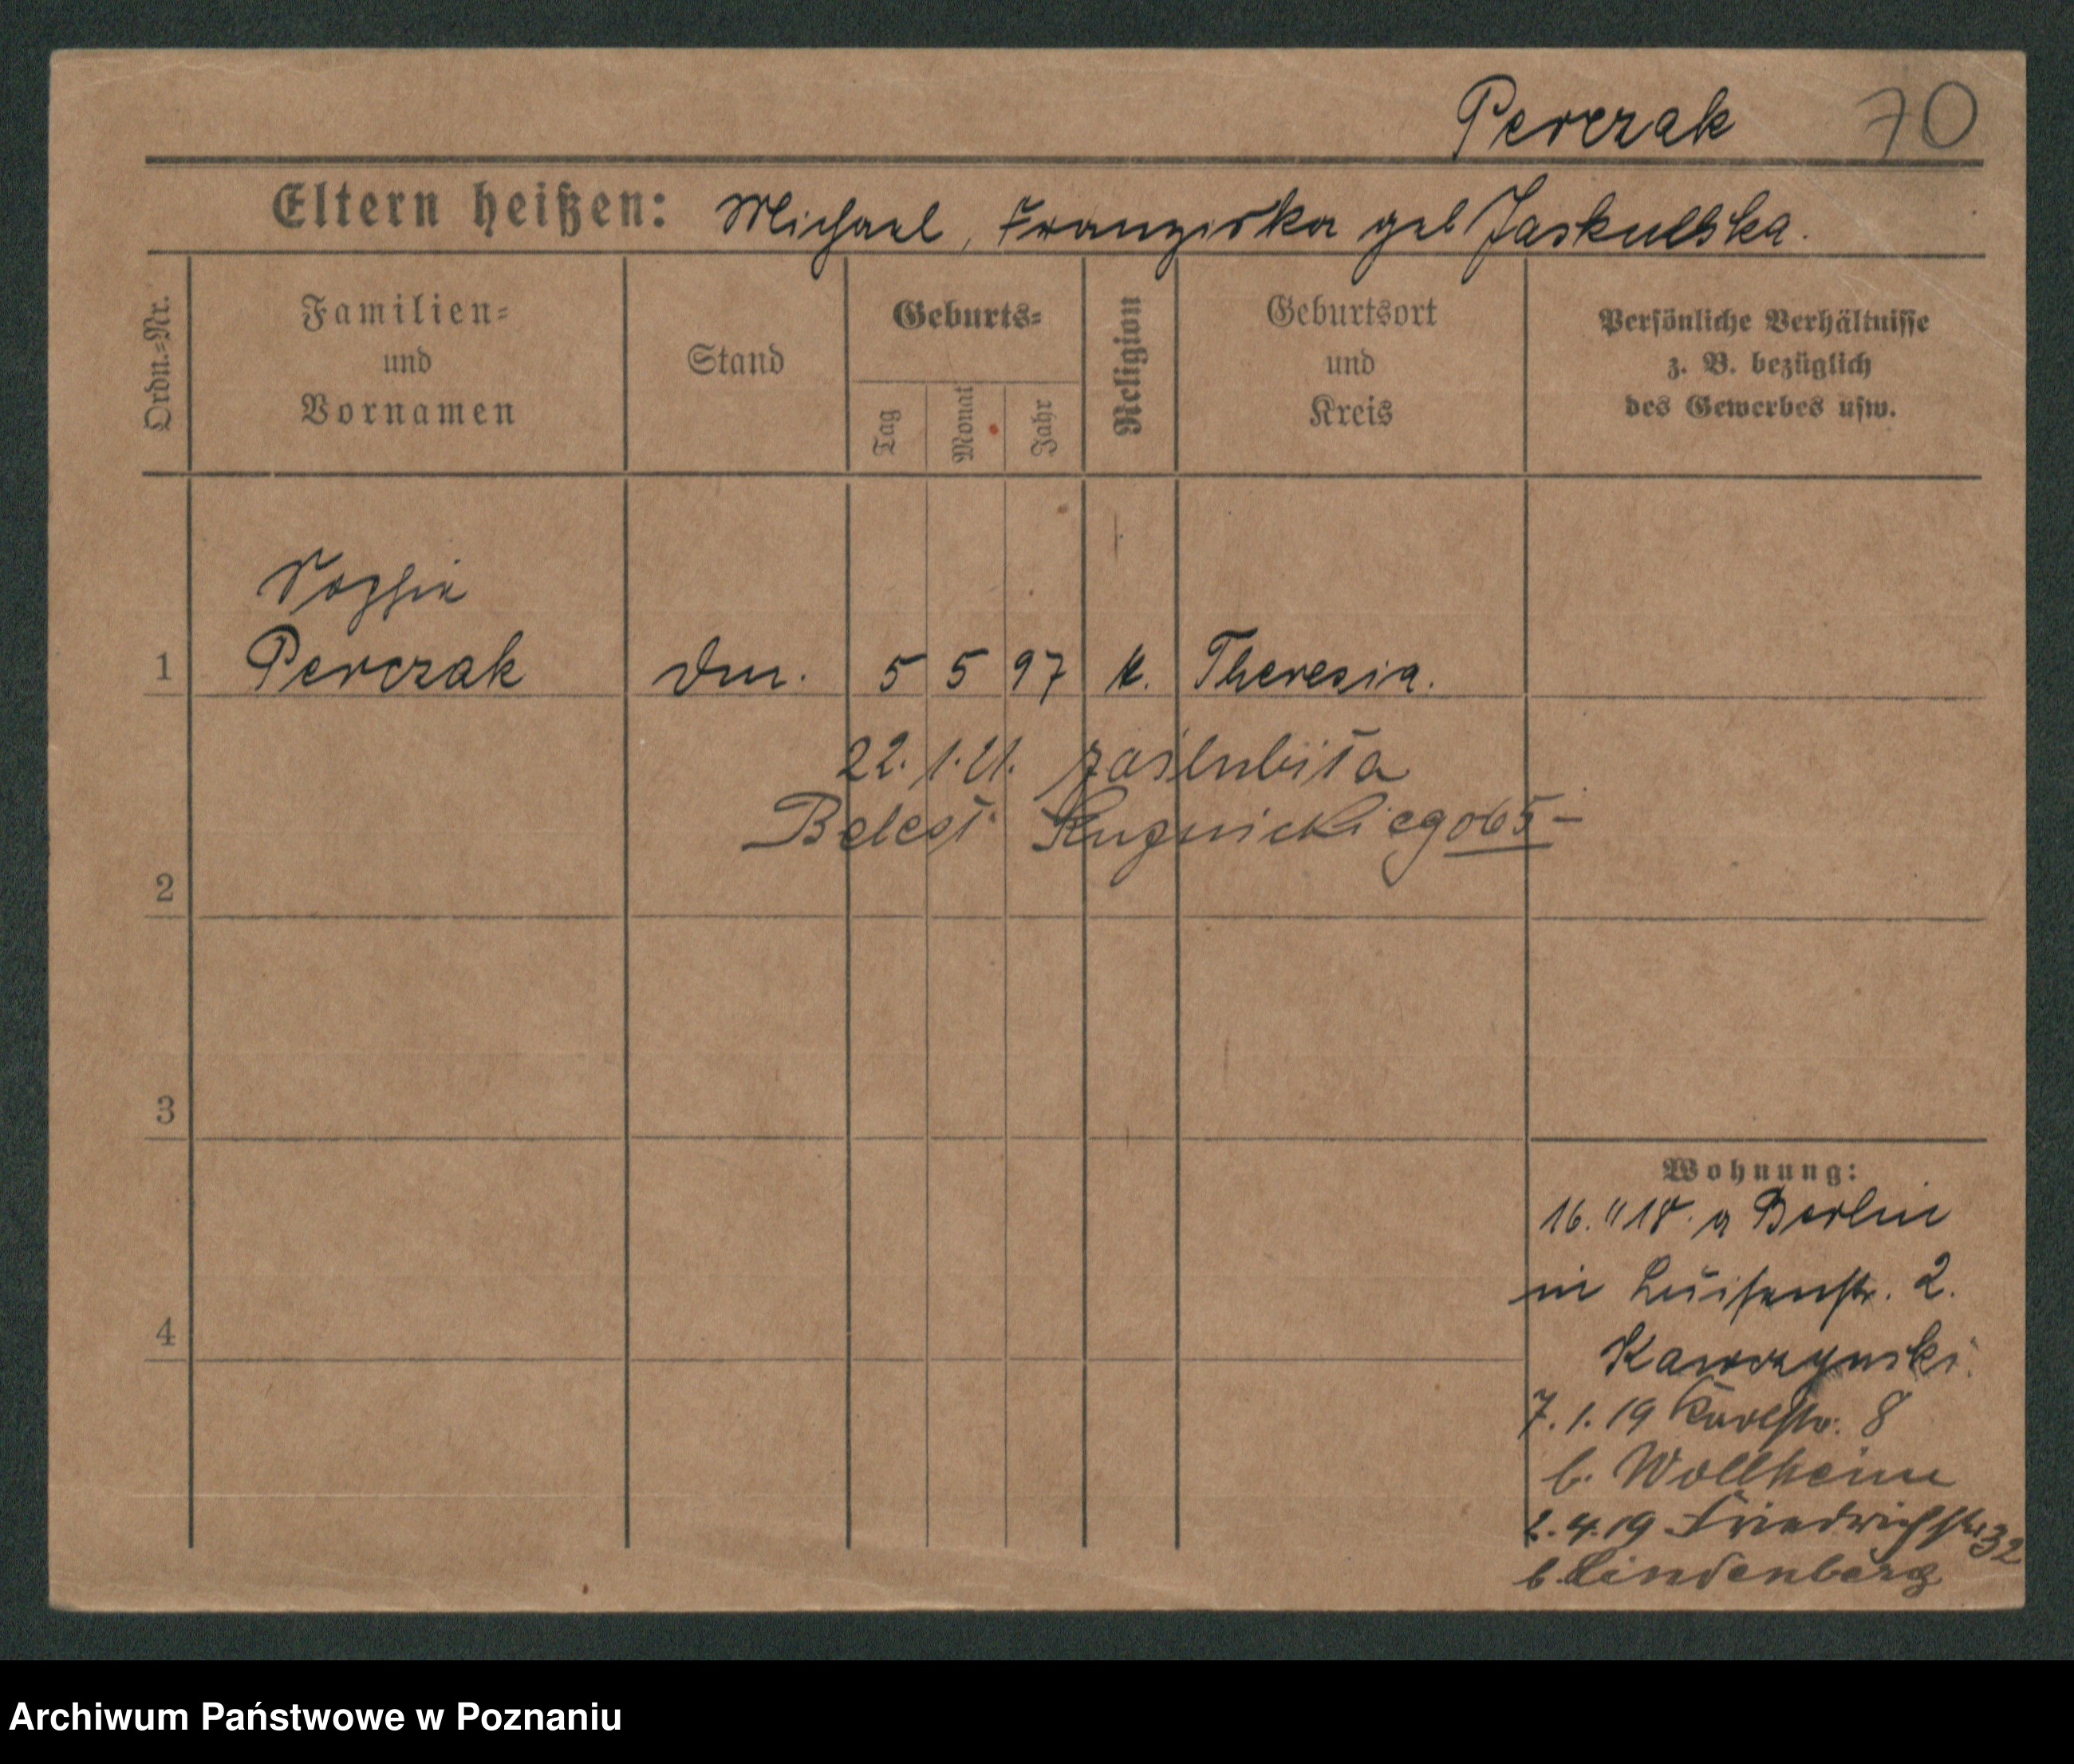 Perczak 70
Eltern heißen: Michael, Franziska geb Jaskulska.
Ordn.=Nr.
Familien=
und
Vornamen
Stand
Geburts=
Tag
Monat
Jahr
Religion
Geburtsort
und
Kreis
Persönliche Verhältnisse
z. B. bezüglich
des Gewerbes usw.
Sophie
1 Perczak 5 5 97 k. Theresia.
22. 1. 21. zaślubiła
2
3
4
Wohnung:
16. 11 18. a Berlin
in Luisenstr. 2.
Kawczynski.
7. 1. 19 Karlstr. 8
b. Wollheim
2. 4. 19 Friedrichstr 32
b. Lindenberg
Archiwum Państwowe w Poznaniu